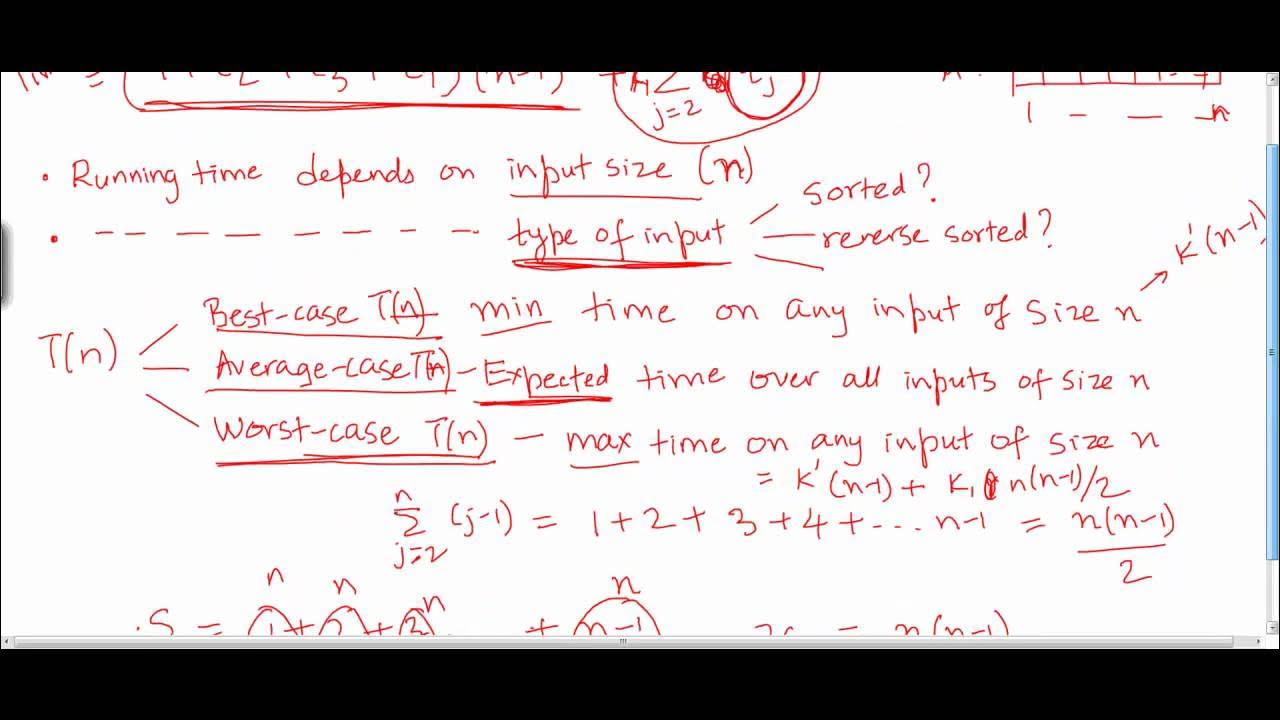 j=2
1 - - n
• Running time depends on input size (n)
sorted?
• - - - - - - - - type of input
reverse sorted?
k'(n-1)
Best-case T(n) min time on any input of size n
T(n)
Average-case T(n) - Expected time over all inputs of size n
Worst-case T(n) - max time on any input of size n
= k'(n-1) + k₁ n(n-1)/2
n
∑ (j-1) = 1+2+3+4+... n-1 = n(n-1)
j=2
2
n n n n
S = 1+2+3 + n-1
= n(n-1)